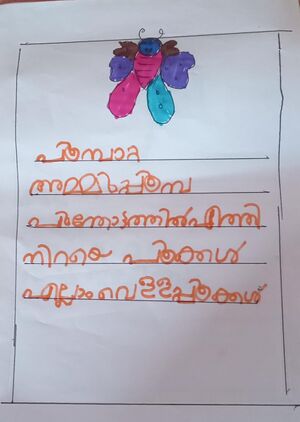 പൂമ്പാറ്റ
പൂന്തോട്ടത്തിൽഎത്തി
നിറയെ പൂക്കൾ
എല്ലാം വെളളപ്പൂക്കൾ